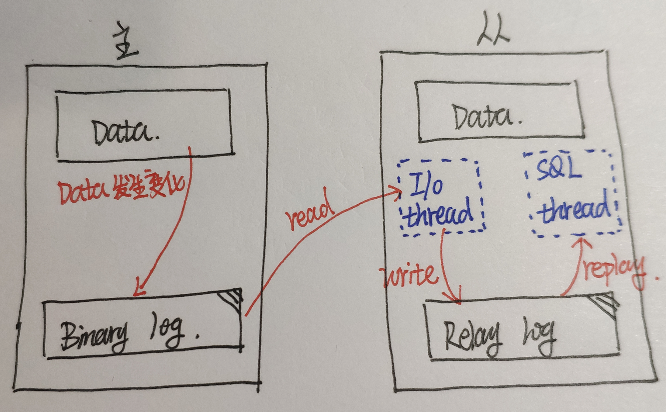 主
从
Data.
Data发生变化
Binary log.
read
Data.
I/o
thread
SQL
thread
write
replay.
Relay log